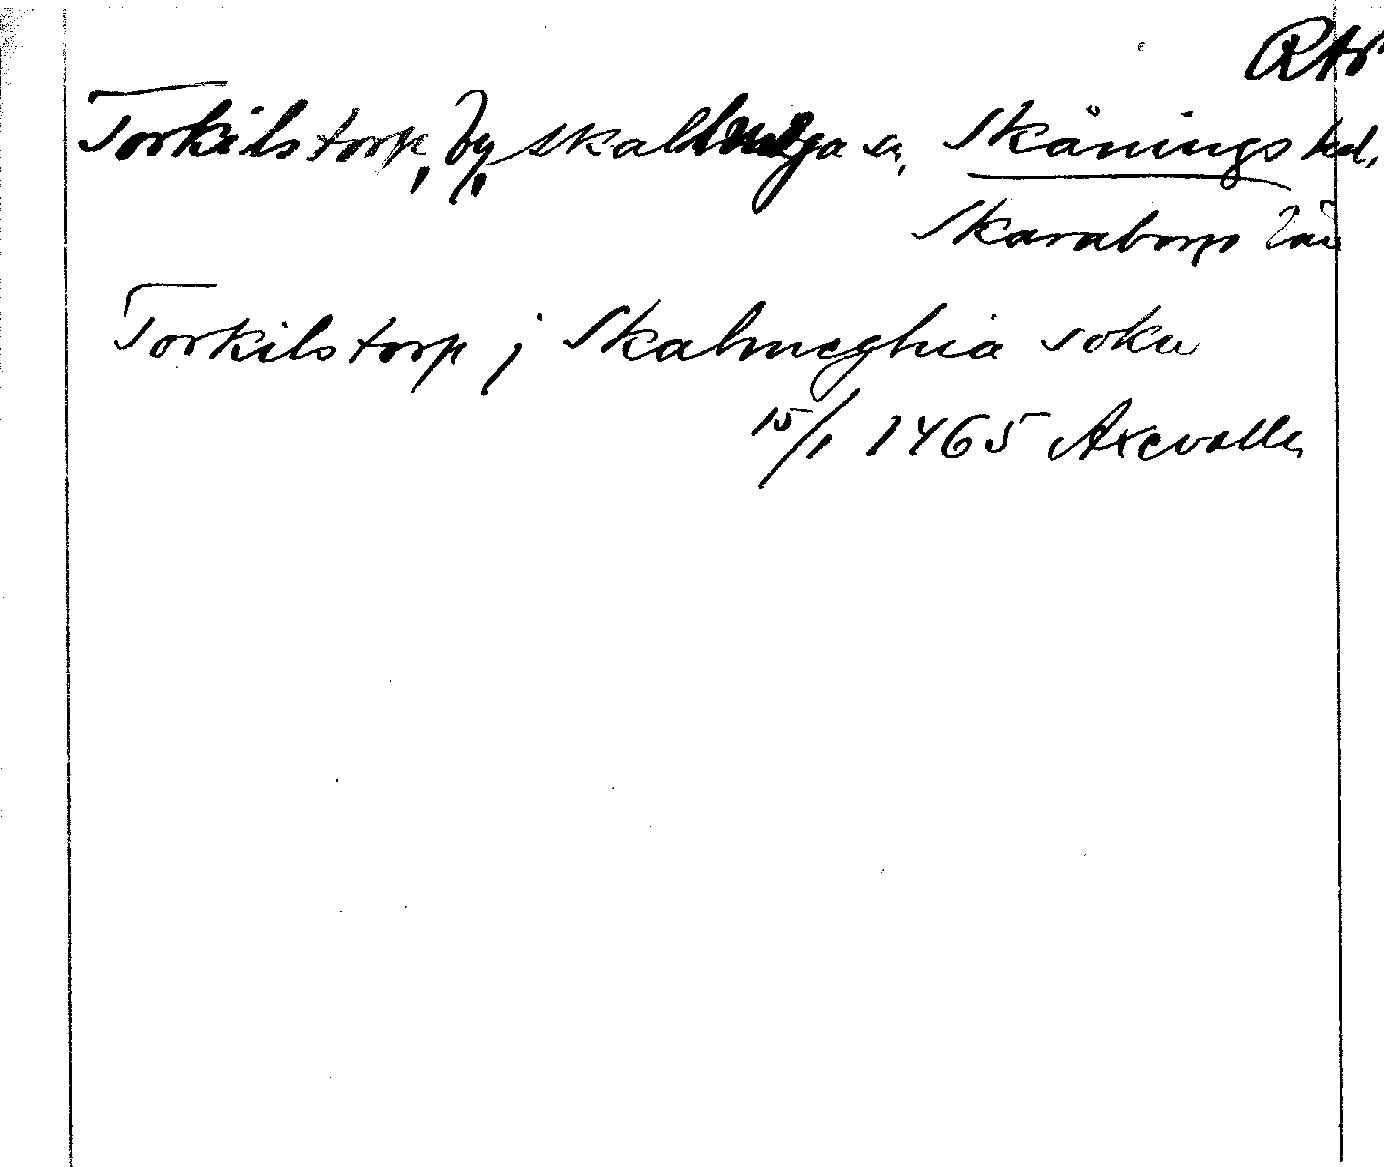 RAp
Torkilstorp, by, Skallmeja sn, Skånings hd,
Skaraborgs län
Torkilstorp j Skalmeghia sokn
15/1 1465 Axevalla